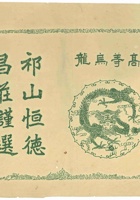 高等烏龍
祁山恒德
昌莊謹選